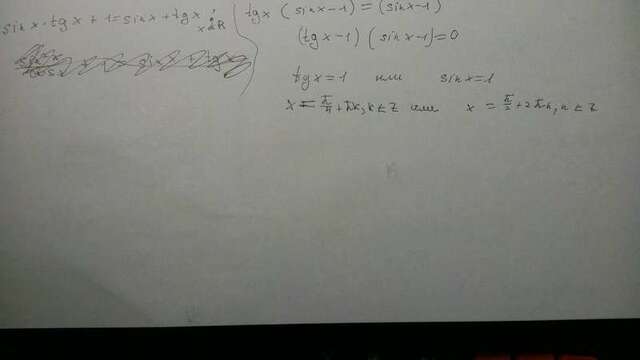 sin x · tg x + 1 = sin x + tg x ; x ∈ R
tg x (sin x - 1) = (sin x - 1)
(tg x - 1) (sin x - 1) = 0
tg x = 1 или sin x = 1
x = π/4 + πk, k ∈ Z или x = π/2 + 2πn, n ∈ Z